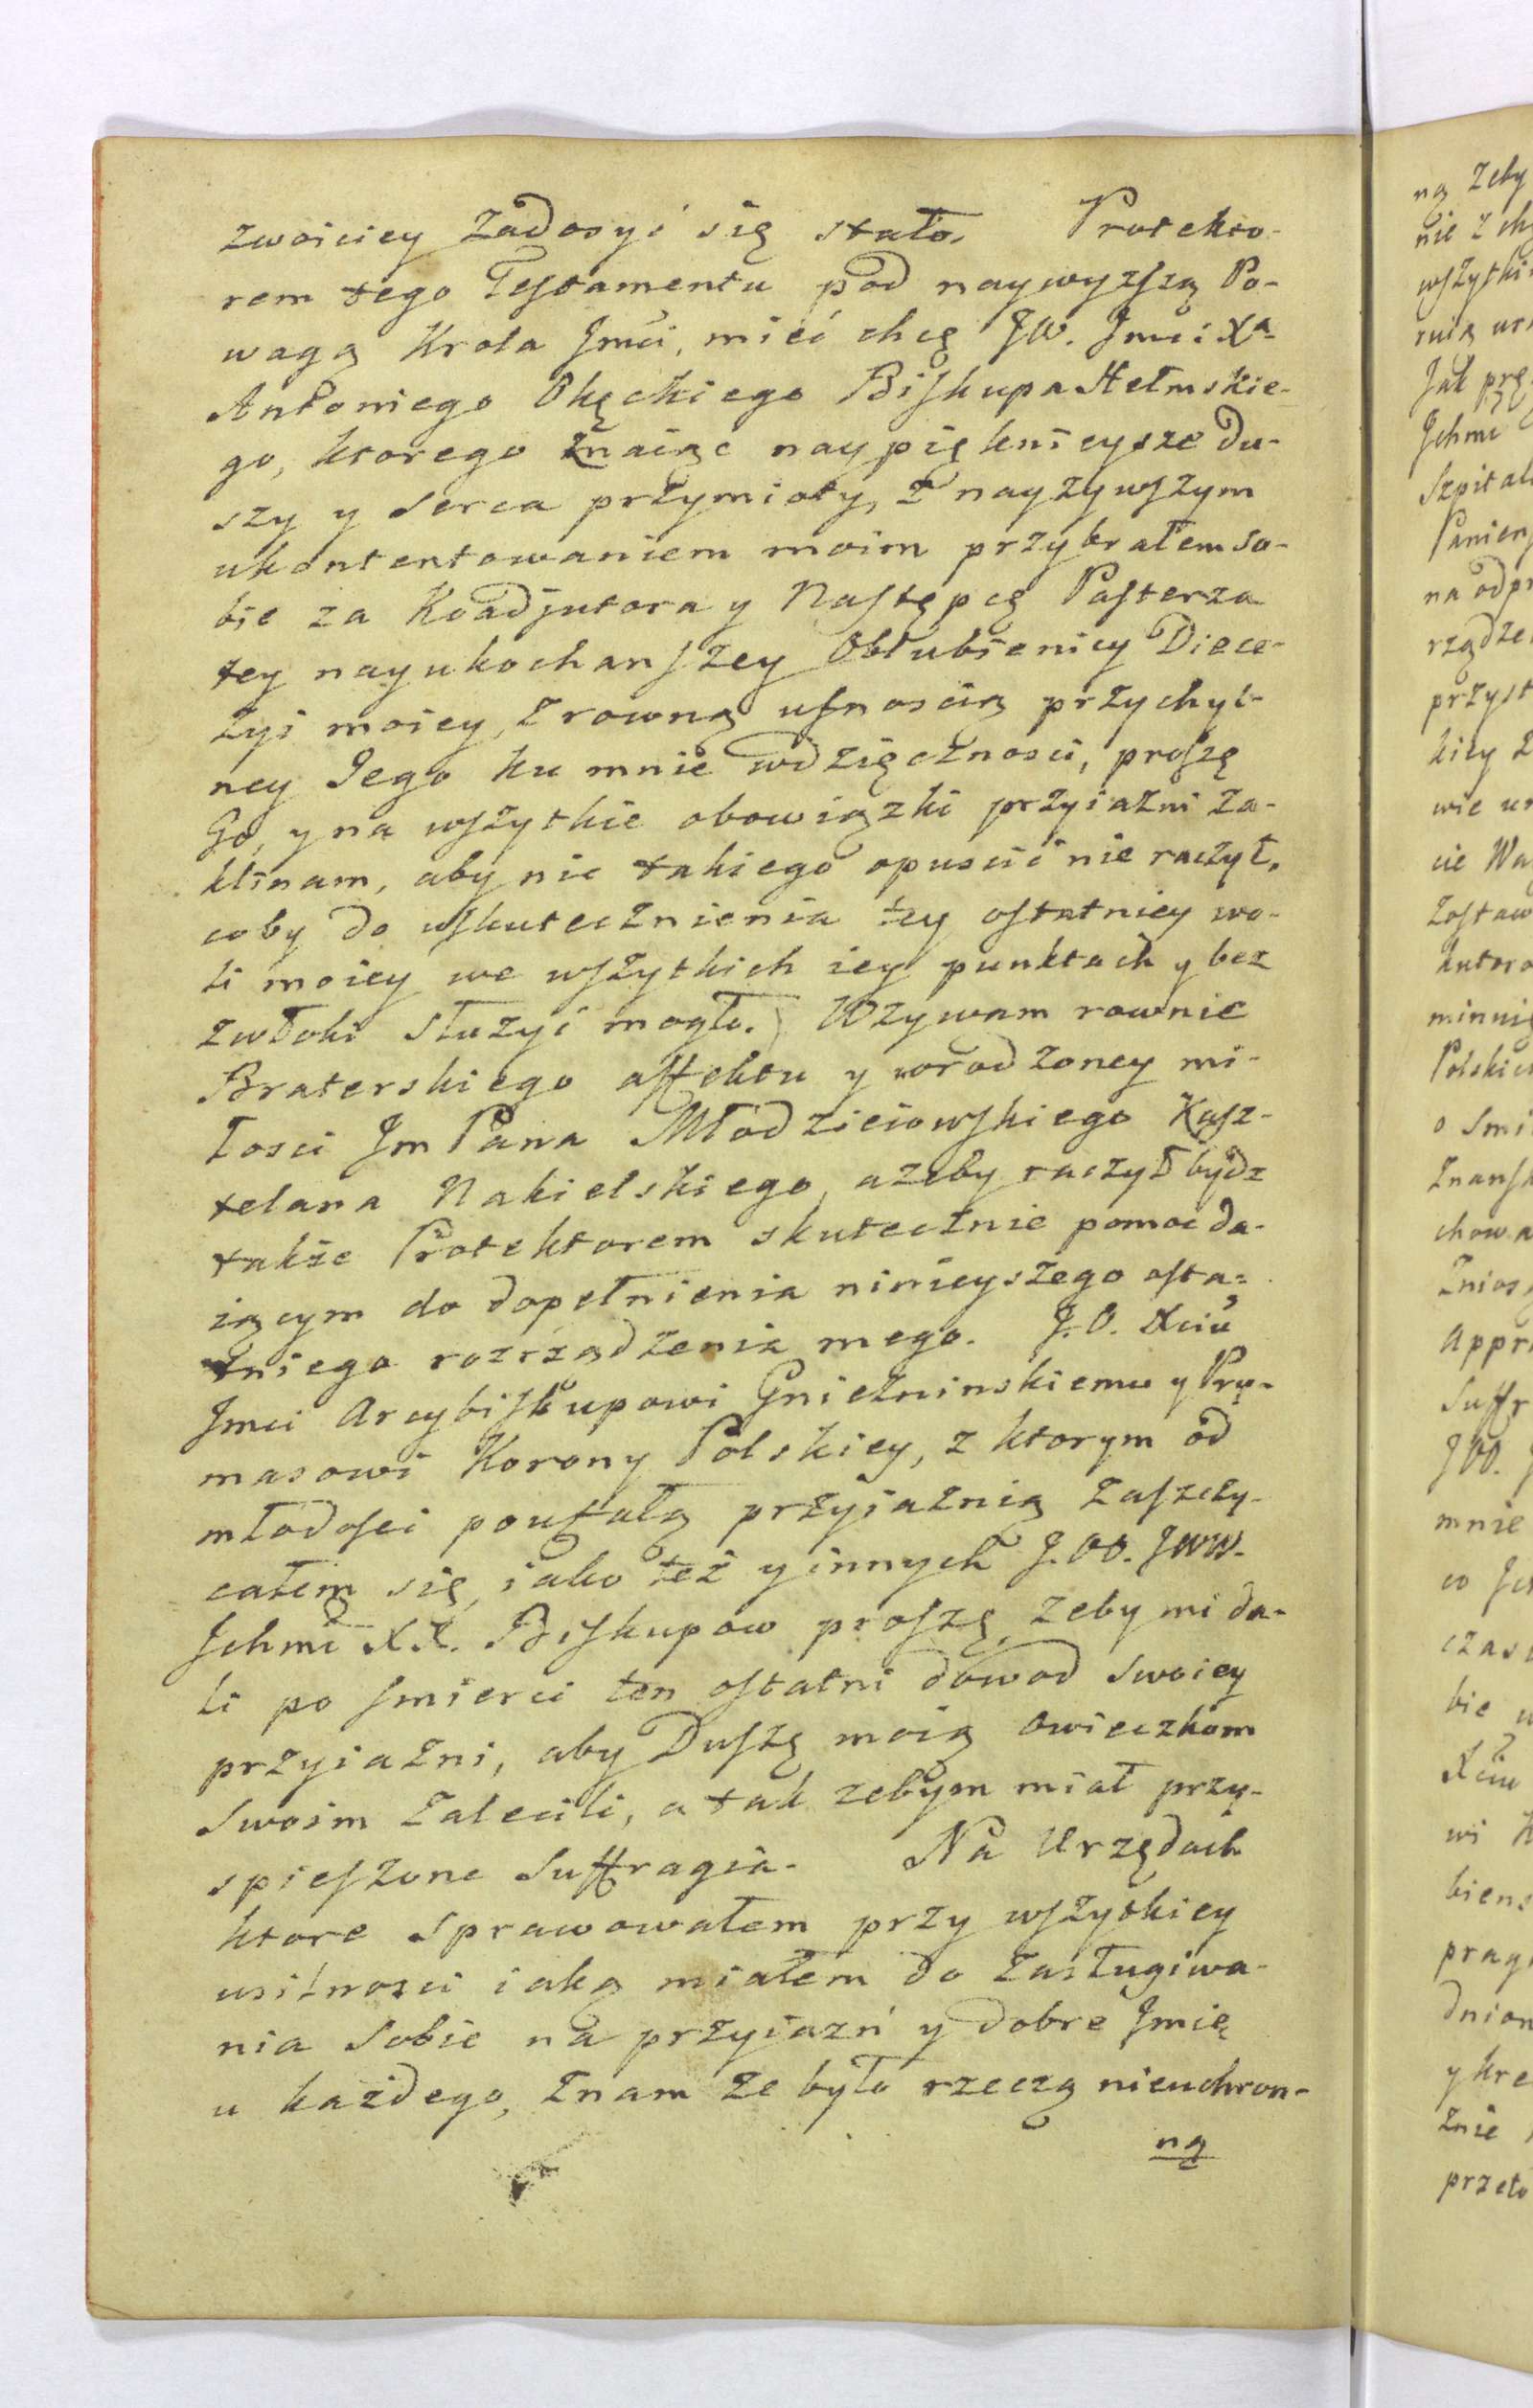 zwoiciey zadosyć się stało. Protekto-
rem tego Testamentu pod naywyzszą Po-
wagą Krola Jmci, mieć chcę JW. Jmci Xa
Antoniego Okęckiego Biskupa Hełmskie-
go, ktorego znaiąc naypięknieysze du-
szy y serca przymioty, z nayzywszym
ukontentowaniem moim przybrałem so-
bie za Koadjutora y Następcę Pasterza
tey nayukochanszey Oblubienicy Diece-
zyi moiey, z rowną ufnoscią przychyl-
ney Jego ku mnie wdzięcznosci, proszę
Go, y na wszytkie obowiązki przyiazni za-
klinam, aby nic takiego opuscić nie raczył,
coby do uskutecznienia tey ostatniey wo-
li moiey we wszytkich iey punktach y bez
zwłoki służyć mogło. Wzywam rownie
Braterskiego affektu y wrodzoney mi-
łosci Jm Pana Młodzieiowskiego Kasz-
telana Nakielskiego, azeby raczył bydz
także Protektorem skutecznie pomoc da-
iącym do dopełnienia ninieyszego osta-
tniego rozrządzenia mego. J.O. Xciu
Jmci Arcybiskupowi Gnieźninskiemu y Pry-
masowi Korony Polskiey, z ktorym od
młodosci poufałą przyiaznią zaszczy-
całem się, iako też y innych J.OO. JWW.
Ichmć XX. Biskupow proszę, zeby mi da-
li po smierci ten ostatni dowod swoiey
przyiazni, aby Duszę moią owieczkom
swoim zalecili, a tak zebym miał przy-
spieszone Suffragia. Na Urzędach
ktore sprawowałem przy wszytkiey
usilnosci iaką miałem do zasługiwa-
nia sobie na przyiazń y dobre Jmię
u każdego, znam ze było rzeczą nieuchron-
ną